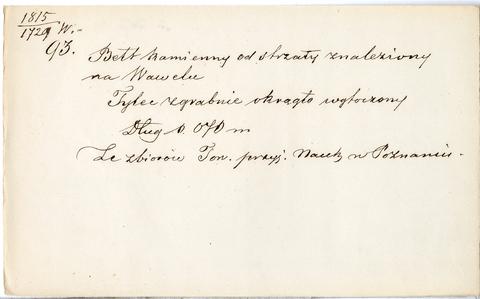 1815
1729 W.-
93.
Bełt kamienny od strzały znaleziony
na Wawelu
Tylec zgrabnie okrągło wytoczony
Dług 0.070 m
Ze zbiorów Tow. przyj. Nauk w Poznaniu.